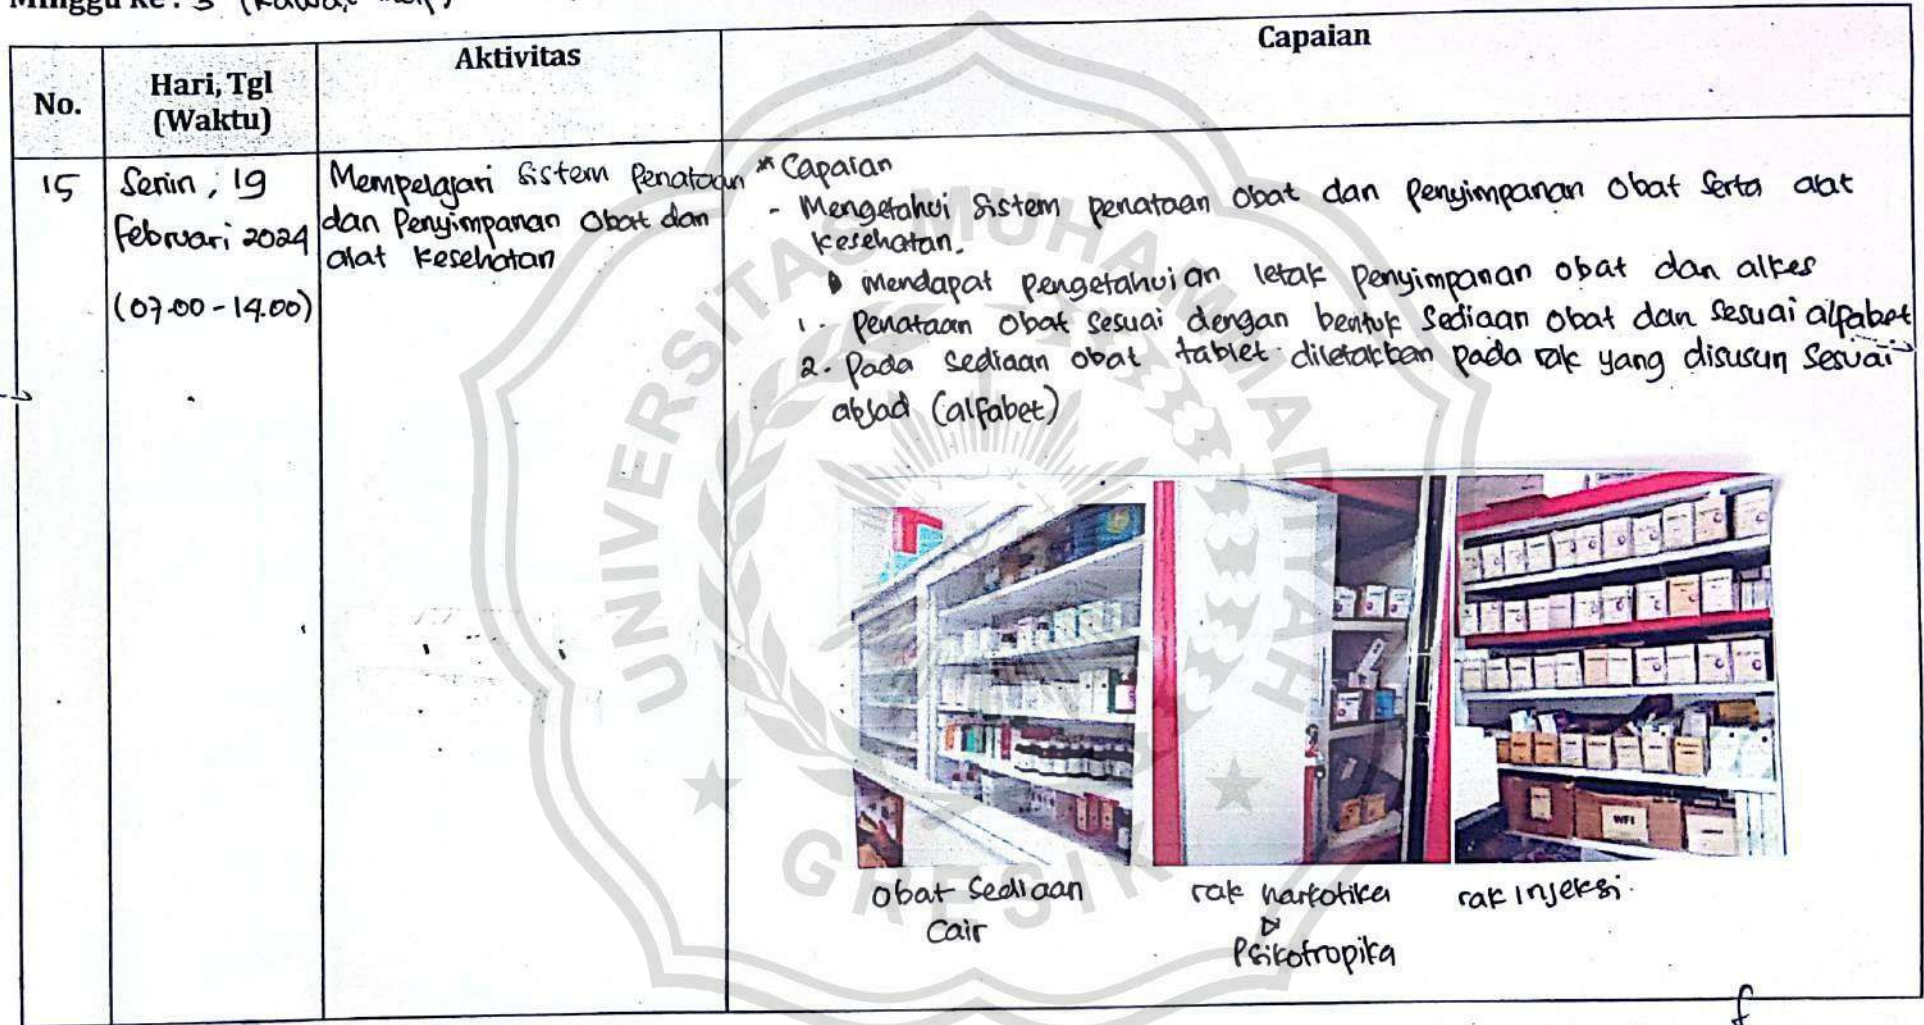 Minggu ke : 3 (Rawat Inap)
No.
Hari, Tgl
(Waktu)
Aktivitas
Capaian
15
Senin, 19
Februari 2024
(07.00 - 14.00)
Mempelajari Sistem Penataan
dan Penyimpanan Obat dan
alat Kesehatan
* Capaian
- Mengetahui Sistem penataan Obat dan Penyimpanan Obat Serta alat
kesehatan.
mendapat pengetahuian letak Penyimpanan obat dan alkes
1. Penataan Obat Sesuai dengan bentuk Sediaan Obat dan Sesuai alfabet
2. Pada sediaan obat tablet diletakkan pada rak yang disusun Sesuai
abjad (alfabet)
WFI
Obat Sediaan
Cair
rak narkotika
&
Psikotropika
rak injeksi.
UNIVERSITAS MUHAMMADIYAH
GRESIK